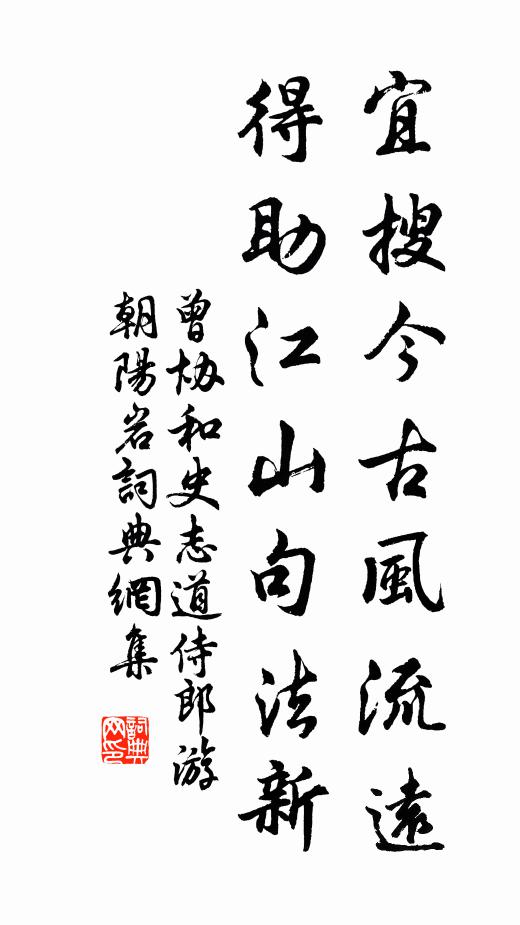 宜搜今古風流遠
得助江山句法新
曾協和史志道侍郎游
朝陽岩詞典網集
詞典網印